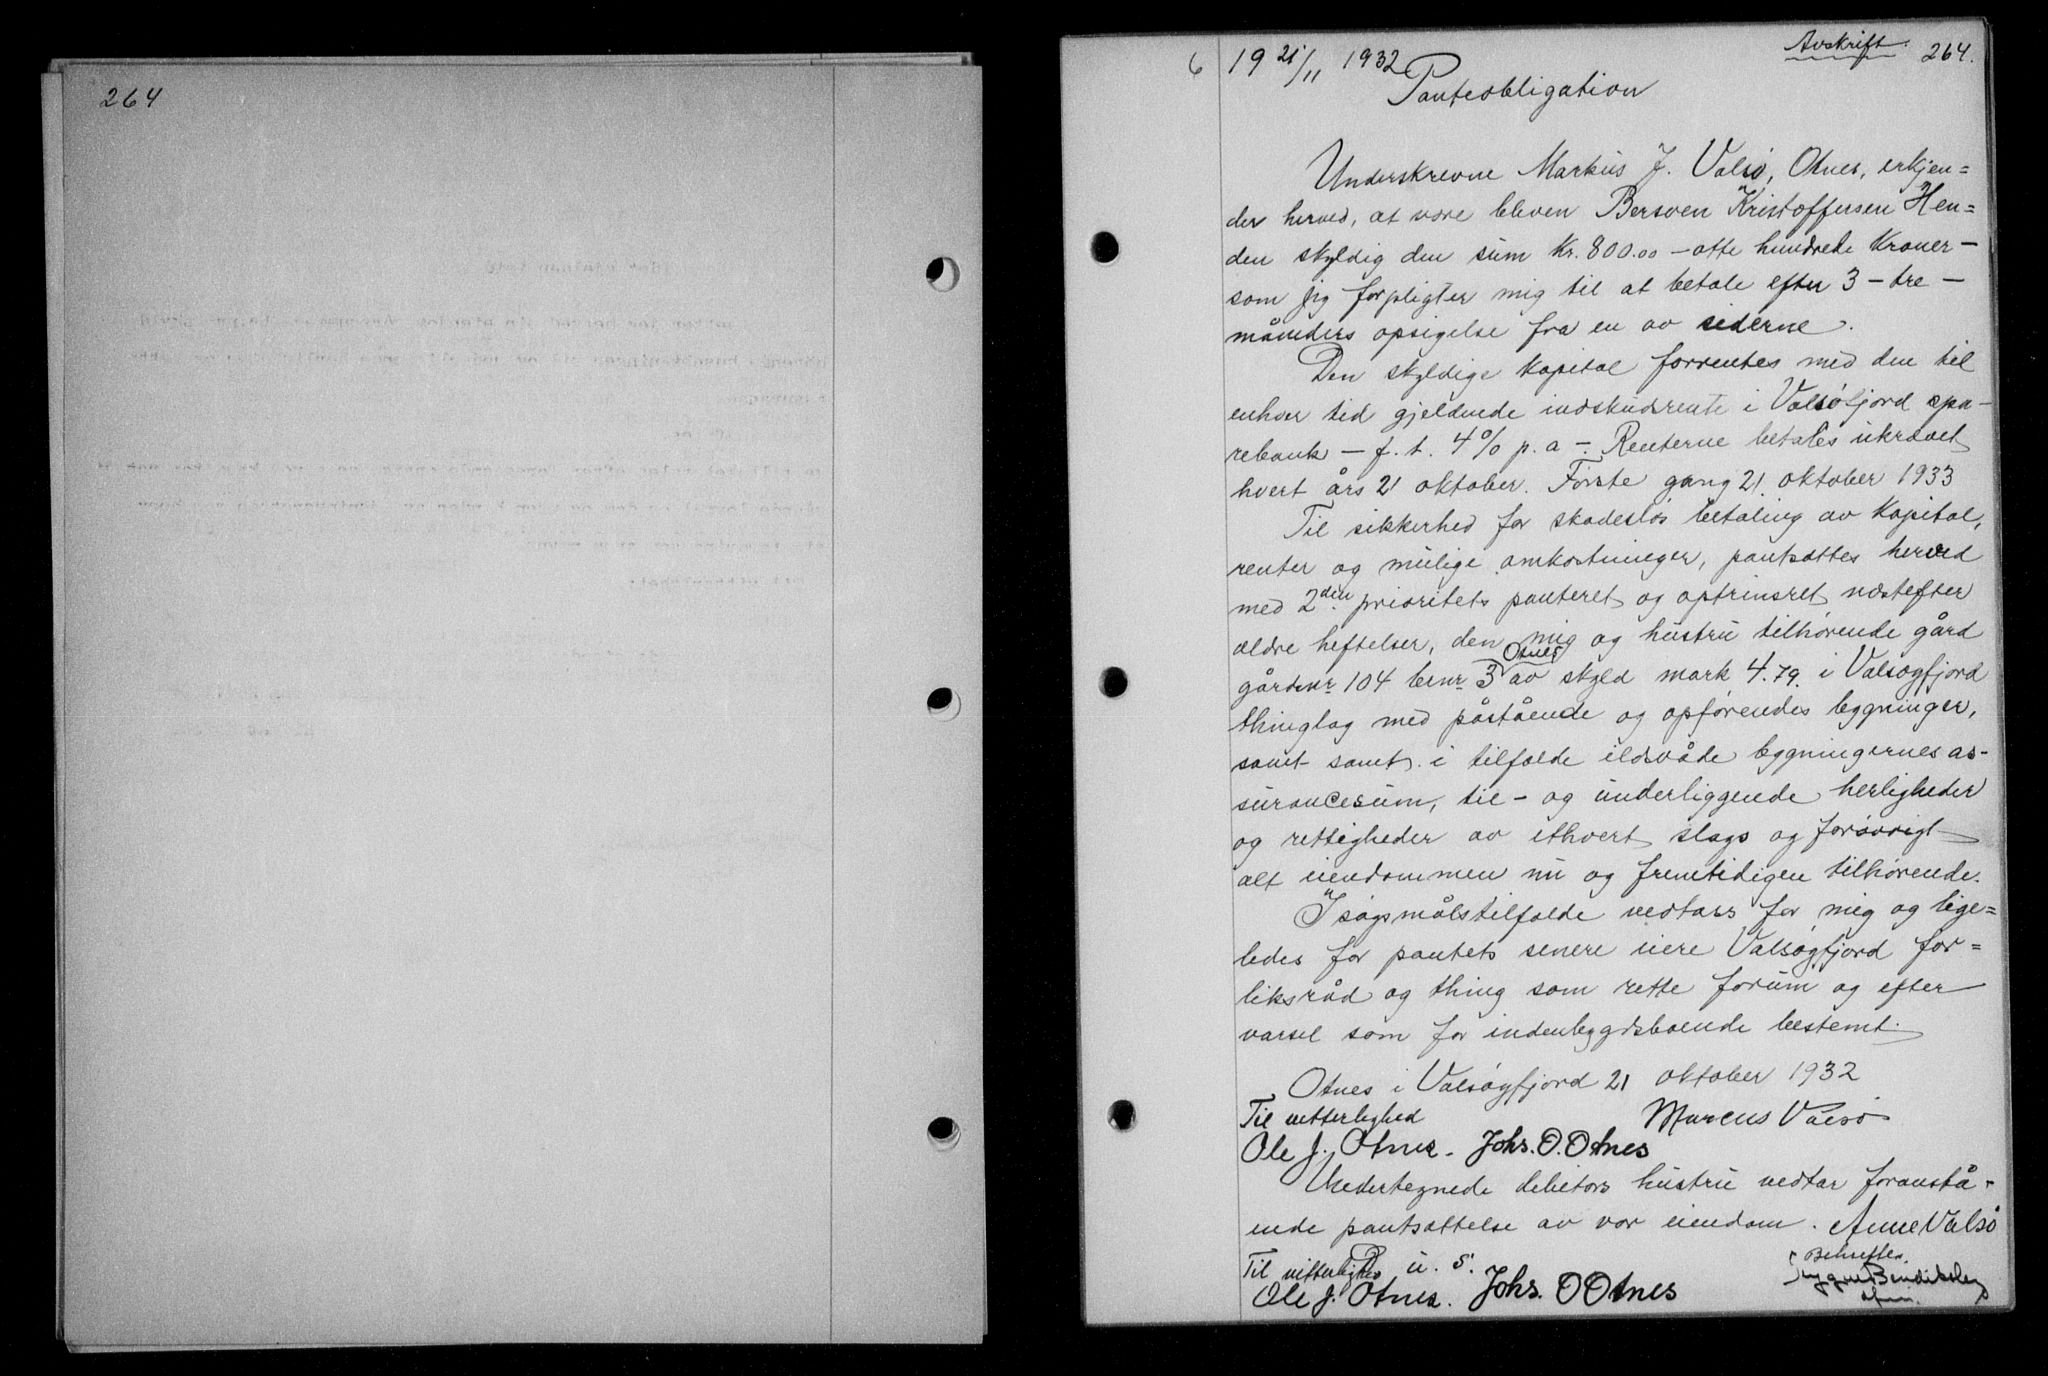 264
Avskrift. 264.
6 19 21/11 1932
Panteobligation
Underskrevne Markus J. Valsö, Otnes, erkjen=
der herved, at være bleven Bersven Kristoffersen Hen=
den skyldig den sum Kr. 800.00 – otte hundrede Kroner –
som jeg forpligter mig til at betale efter 3 – tre –
måneders opsigelse fra en av siderne.
Den skyldige kapital forrentes med den til
enhver tid gjeldende indskudsrente i Valsöfjord spa-
rebank – f. t. 4% p. a –. Renterne betales ukrævet
hvert års 21 oktober. Første gang 21 oktober 1933
Til sikkerhed for skadesløs betaling av kapital,
renter og mulige omkostninger, pantsættes herved
med 2den prioritets panteret og optrinsret næstefter
ældre heftelser, den mig og hustru tilhørende gård
Otnes
gårdsnr 104 brnr 3 av skyld mark 4.79. i Valsøyfjord
thinglag med påstående og opførendes bygninger,
samt samt. i tilfælde ildsvåde bygningernes as-
surancesum, til- og underliggende herligheder
og rettigheder av ethvert slags og forøvrigt
alt eiendommen nu og fremtidigen tilhørende.
I søgsmålstilfælde vedtaes for mig og lige=
ledes for pantets senere eiere Valsøyfjord for=
liksråd og thing som rette forum og efter
varsel som for indenbygdsboende bestemt.
Otnes i Valsøyfjord 21 oktober 1932
Til vitterlighed Marcus Valsö
Ole J. Otnes. Johs. O. Otnes
Undertegnede debitors hustru vedtar foranstå-
ende pantsættelse av vor eiendom. Anne Valsö
D. u. s.
Til vitterlighed
Ole J. Otnes. Johs. O Otnes
Bekreftes.
Trygve Bendiksen